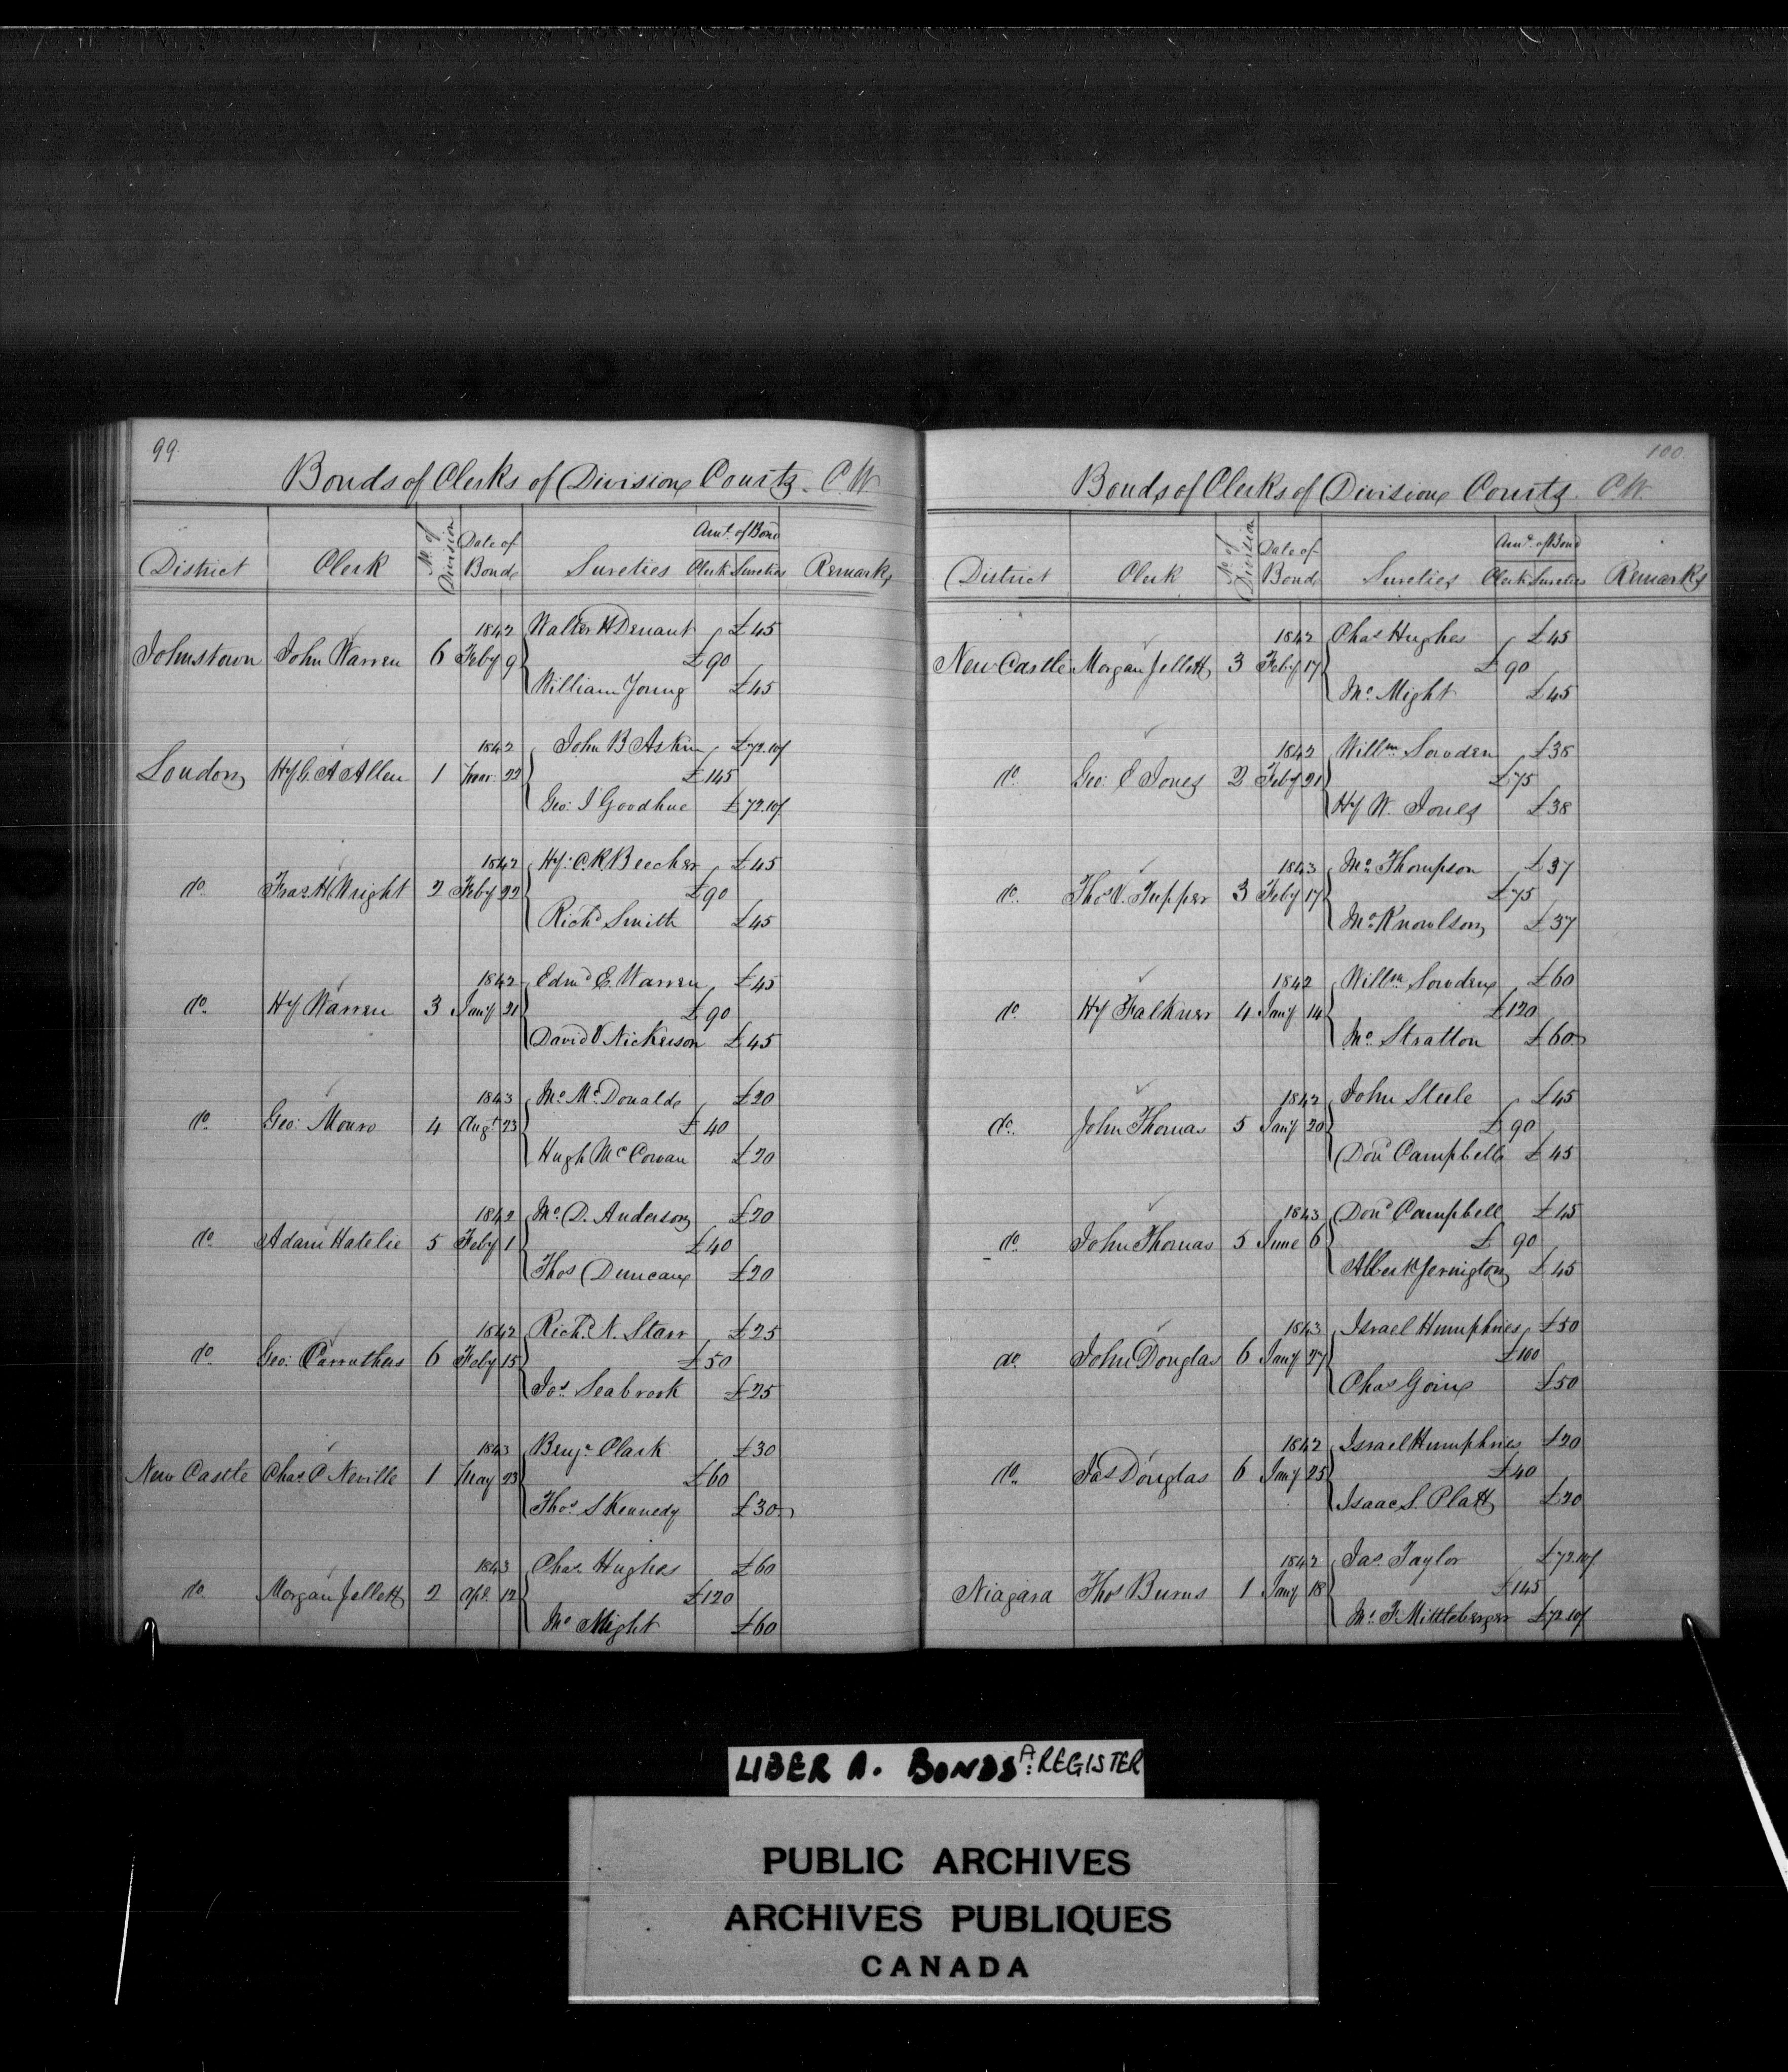 99.
Bonds of Clerks of Division Courts. C.W
District Clerk No. of Division Date of Bond Sureties Amt. of Bond Clerk Sureties Remarks
1842 Walter H Denaut £45
Johnstown John Warren 6 Feby 9 £90
William Young £45
1842 John B Askin £72.10/
London Hy C. A Allen 1 22 £145
Geo: J Goodhue £72.10/
1842 Hy: C. R Beecher £45
do. Fras. H. Wright 2 Feby 22 £90
Richd Smith £45
1842 Edmd E. Warren £45
do. Hy Warren 3 Jany 21 £90
David V Nickerson £45
1843 Mc. McDonald £20
do. Geo: Monro 4 Augt 23 £40
Hugh McCowan £20
1842 Mc. D. Anderson £20
do. Adam Hatelie 5 Feby 1 £40
Thos Duncan £20
1842 Richd. N. Starr £25
do. Geo: Carruthers 6 Feby 15 £50
Jos. Seabrook £25
1843 Benjn. Clark £30
New Castle Chas. C. Neville 1 May 23 £60
Thos. S Kennedy £30
1843 Chas. Hughes £60
do. Morgan Jellett 2 Apl. 12 £120
Mc Might £60
100.
Bonds of Clerks of Division Courts. C.W.
District Clerk No. of Division Date of Bond Sureties Amt. of Bond Clerk Sureties Remarks
1842 Chas Hughes £45
New Castle Morgan Jellett 3 Feby 17 £90
Mc. Might £45
1842 Willm. Sowden £38
do. Geo: C Jones 2 Feby 21 £75
Hy W. Jones £38
1843 Mc. Thompson £37
do. Thos V. Tupper 3 Feby 17 £75
Mc. Knowlson £37
1842 Willm. Sowden £60
do. Hy Falkner 4 Jany 14 £120
Mc. Stratton £60
1842 John Steele £45
do. John Thomas 5 Jany 20 £90
Dond Campbell £45
1843 Dond Campbell £45
do. John Thomas 5 June 6 £90
Albert Yerington £45
1843 Israel Humphries £50
do. John Douglas 6 Jany 27 £100
Chas Goin £50
1842 Israel Humphries £20
do. Jas Douglas 6 Jany 25 £40
Isaac S. Platt £20
1842 Jas. Taylor £72.10/
Niagara Thos Burns 1 Jany 18 £145
Mc. F. Mittleberger £72.10/
LIBER A. BONDS A: REGISTER
PUBLIC ARCHIVES
ARCHIVES PUBLIQUES
CANADA